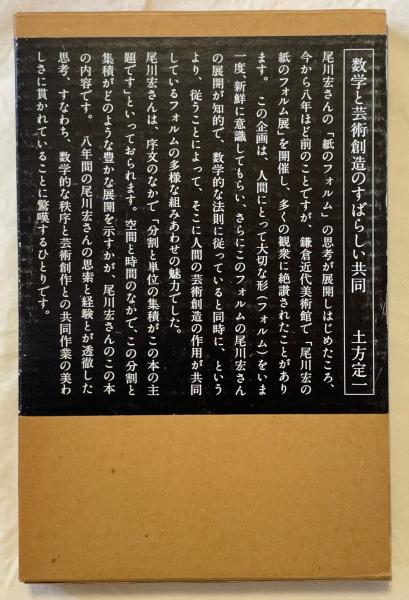 数学と芸術創造のすばらしい共同　土方定一
尾川宏さんの「紙のフォルム」の思考が展開しはじめたころ、
今から八年ほど前のことですが、鎌倉近代美術館で「尾川宏の
紙のフォルム展」を開催し、多くの観衆に絶讃されたことがあり
ます。この企画は、人間にとって大切な形（フォルム）をいま
一度、新鮮に意識してもらい、さらにこのフォルムの尾川宏さん
の展開が知的で、数学的な法則に従っていると同時に、という
より、従うことによって、そこに人間の芸術創造の作用が共同
しているフォルムの多様な組みあわせの魅力でした。
尾川宏さんは、序文のなかで「分割と単位の集積がこの本の主
題です」といっておられます。空間と時間のなかで、この分割と
集積がどのような豊かな展開を示すかが、尾川宏さんのこの本
の内容です。八年間の尾川宏さんの思索と経験とが透徹した
思考、すなわち、数学的な秩序と芸術創作との共同作業の美わ
しさに貫かれていることに驚嘆するひとりです。